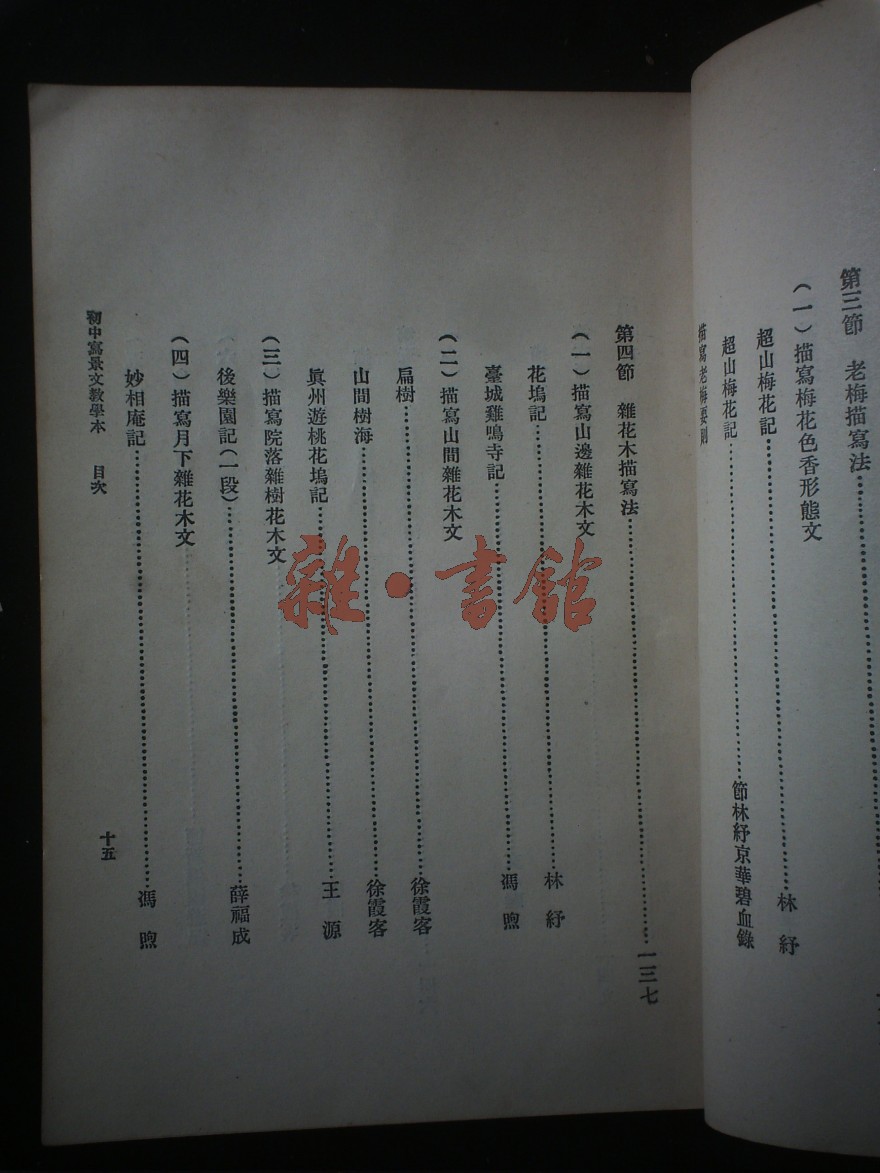 第三節　老梅描寫法……
（一）描寫梅花色香形態文
超山梅花記……林　紓
超山梅花記……節林紓京華碧血錄
描寫老梅要則
第四節　雜花木描寫法……一三七
（一）描寫山邊雜花木文
花塢記……林　紓
臺城雞鳴寺記……馮　煦
（二）描寫山間雜花木文
扁樹……徐霞客
山間樹海……徐霞客
眞州遊桃花塢記……王　源
（三）描寫院落雜樹花木文
後樂園記（一段）……薛福成
（四）描寫月下雜花木文
妙相庵記……馮　煦
初中寫景文教學本　目次
十五
雜·書館